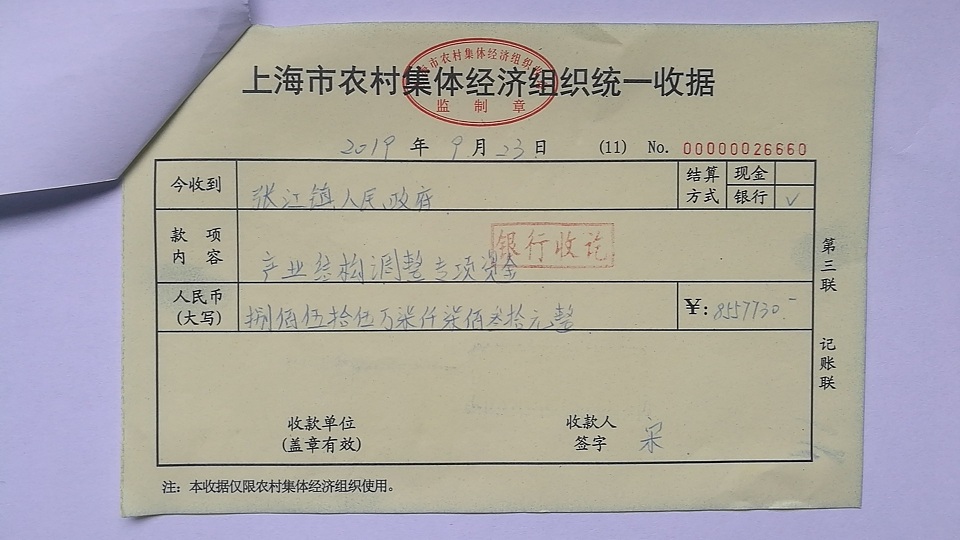 上海市农村集体经济组织统一收据
海市农村集体经济组织
监制章
2019年9月23日 (11) No. 00000026660
今收到 张江镇人民政府 结算方式 现金
银行 √
款项内容 产业结构调整专项资金
银行收讫
人民币(大写) 捌佰伍拾伍万柒仟柒佰叁拾元整 ¥:8557730.-
第三联
记账联
收款单位 收款人
(盖章有效) 签字 宋
注:本收据仅限农村集体经济组织使用。